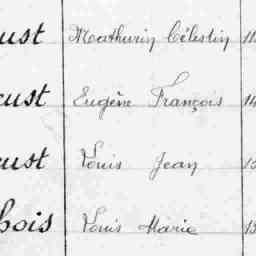 ust Mathurin Célestin 11
cust Eugène François 14
cust Louis Jean 15
bois Louis Marie 15